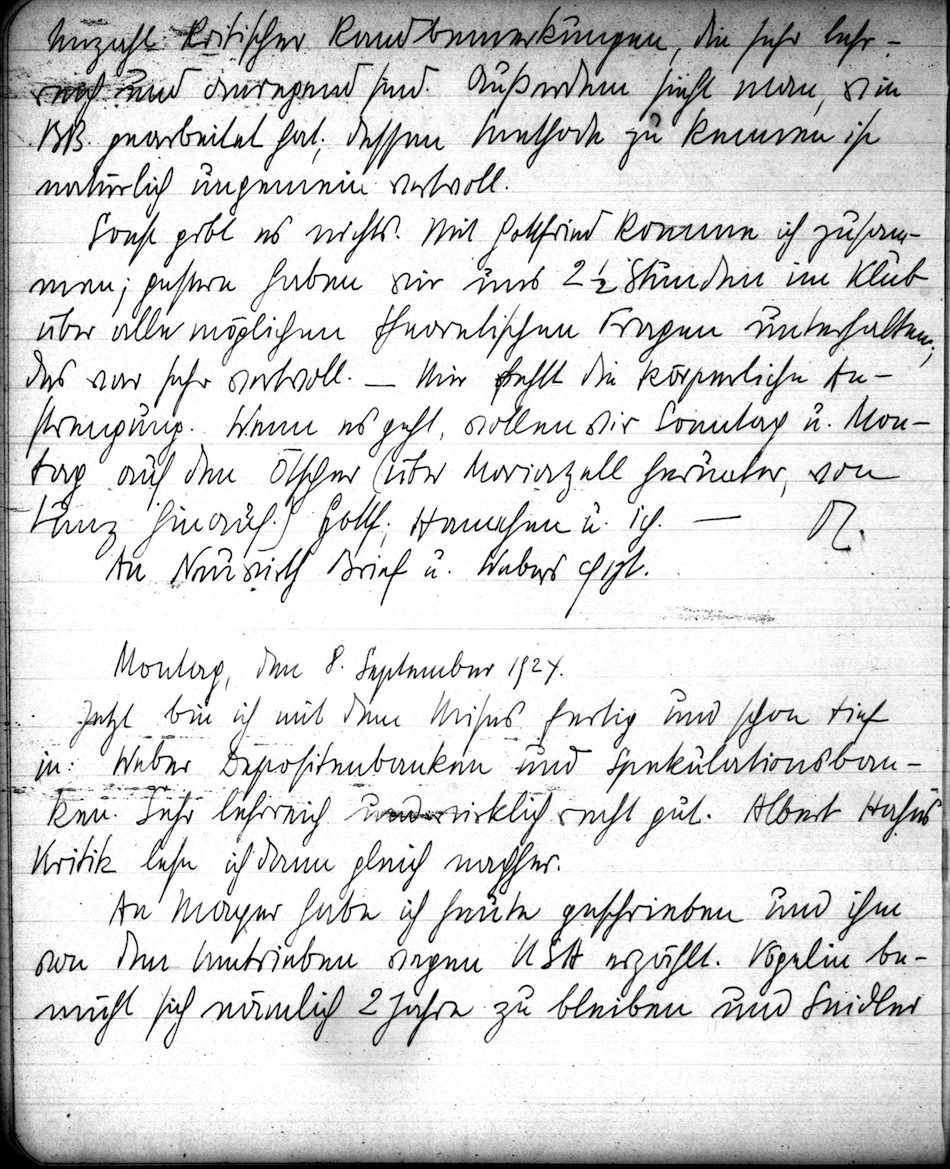 Anzahl kritischer Randbemerkungen, die sehr lehr-
reich und anregend sind. Außerdem sieht man, wie
BB. gearbeitet hat; dessen Methode zu kennen ist
natürlich ungemein wertvoll.
Sonst gibt es nichts. Mit Gottfried komme ich zusam-
men; gestern haben wir uns 2 ½ Stunden im Klub
über alle möglichen theoretischen Fragen unterhalten;
das war sehr wertvoll. — Mir fehlt die körperliche An-
strengung. Wenn es geht, wollen wir Sonntag u. Mon-
tag auf den Ötscher (über Mariazell herunter, von
Lunz hinauf.) Gottf., Hannchen u. ich. —
An Brief u.
Montag, den 8. September 1924.
Jetzt bin ich mit dem Mises fertig und schon tief
in: Weber Depositenbanken und Spekulationsban-
ken. Sehr lehrreich und wirklich recht gut. Albert Hahns
Kritik lese ich dann gleich nachher.
An Mayer habe ich heute geschrieben und ihm
von den Umtrieben wegen USA erzählt. Vögelin be-
müht sich nämlich 2 Jahre zu bleiben und Seidler